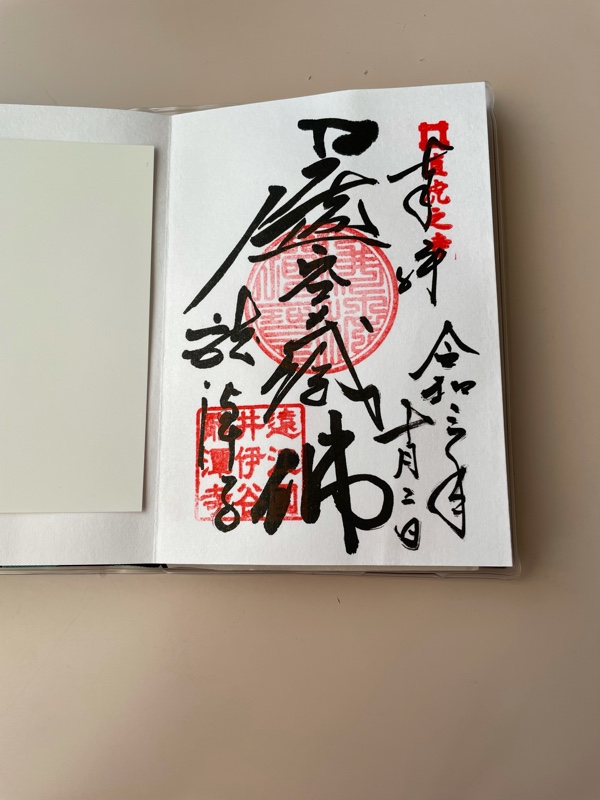 直虎之寺
奉拝
令和三年
十月二日
虚空蔵佛
龍潭寺
遠江国
井伊谷
龍潭寺